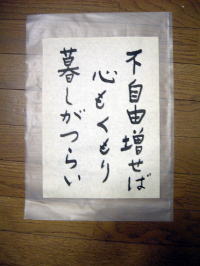 不自由増せば
心もくもり
暮しがつらい